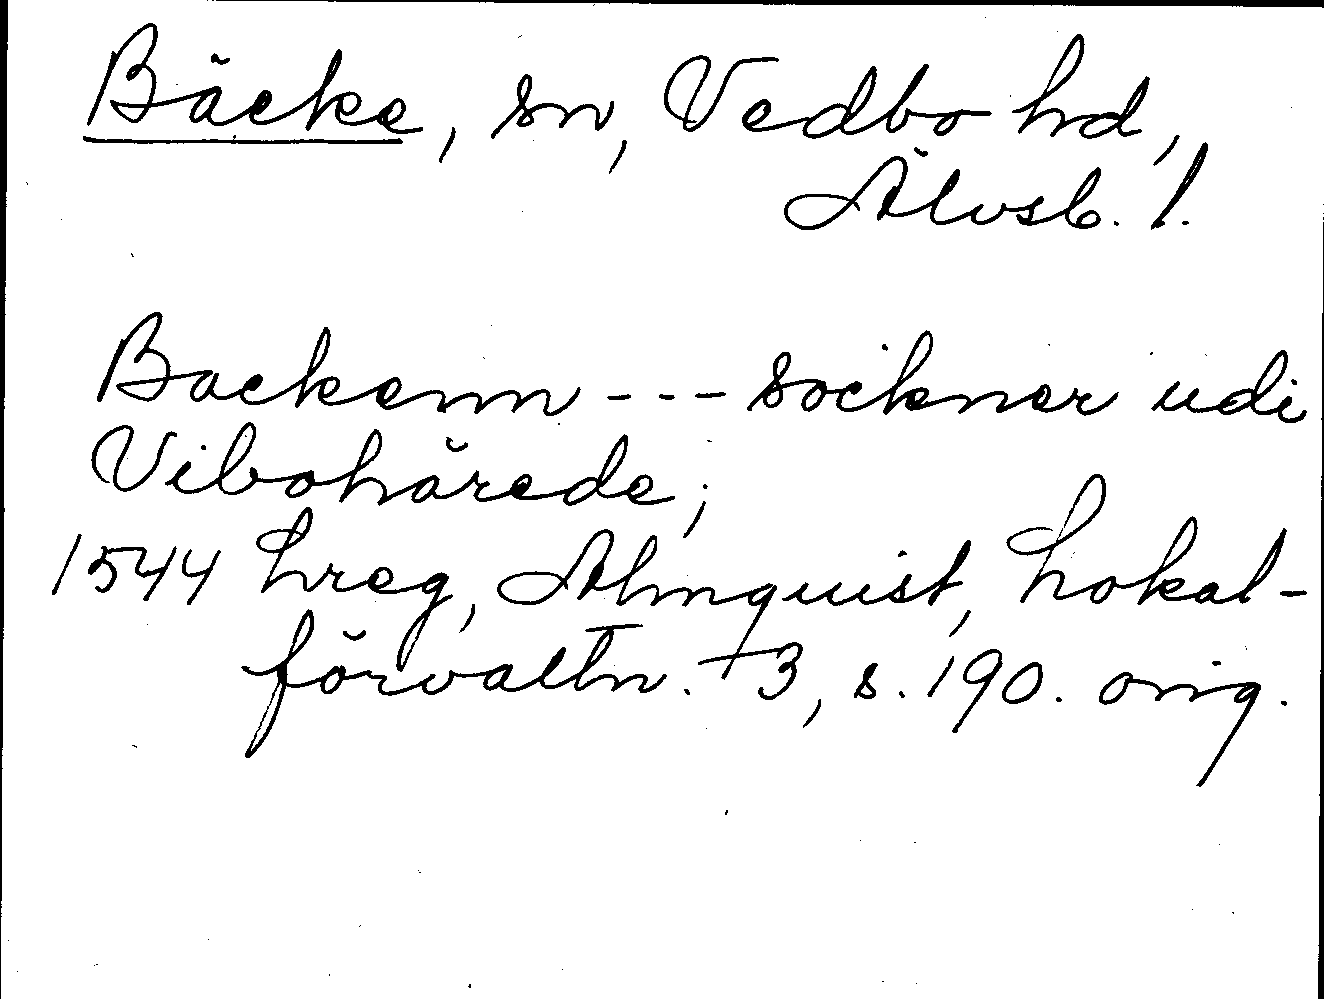 Bäcke, sn, Vedbo hd,
Älvsb. l.
Backenn --- sockner udi
Vibohärede;
1544 hreg, Almquist, Lokal-
förvaltn. 3, s. 190. orig.